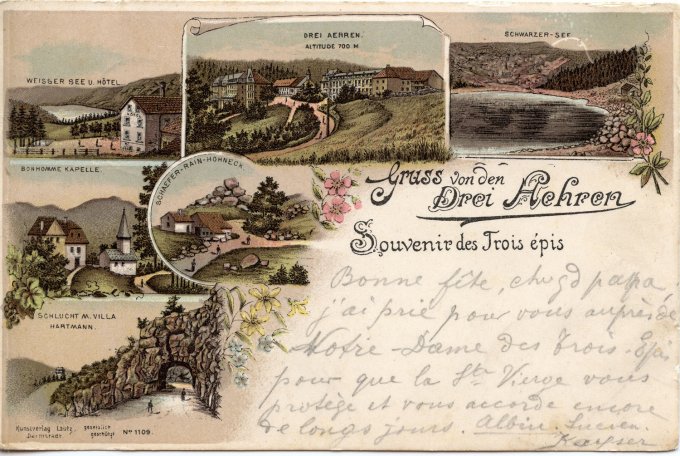 DREI AEHREN.
ALTITUDE 700 M
SCHWARZER-SEE
WEISSER SEE U. HÔTEL
BONHOMME KAPELLE.
SCHAEFER-RAIN-HOHNECK
Gruss von den
Drei Aehren
Souvenir des Trois épis
SCHLUCHT M. VILLA
HARTMANN.
Bonne fête, ch gd papa,
j'ai prié pour vous auprès de
Notre-Dame des Trois-Epis
pour que la Ste Vierge vous
protège et vous accorde encore
de longs jours. Albin. Lucien.
Kayser
Kunstverlag Lautz, gesetzlich
Darmstadt geschützt Nº 1109.